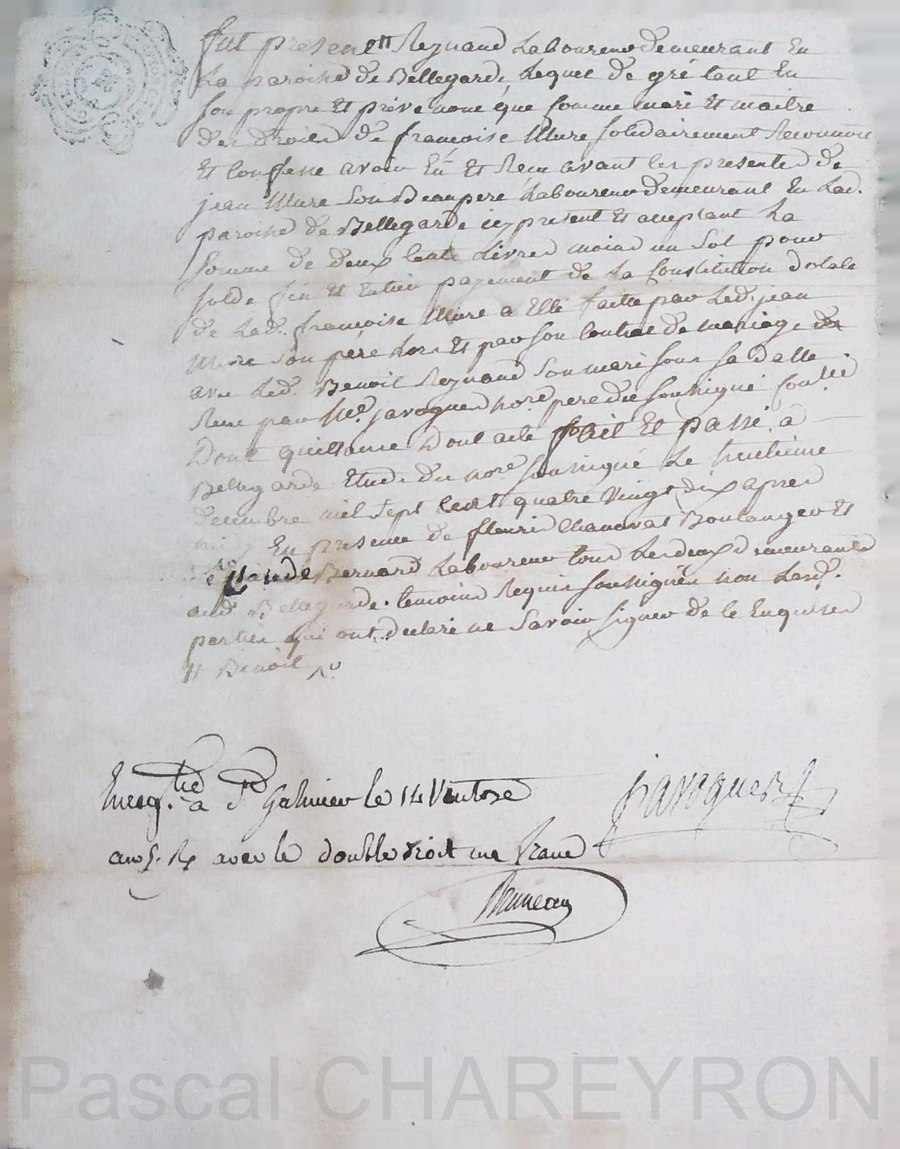 fut present tt Reynaud Laboureur demeurant En
La paroisse de Bellegarde Lequel de gré tant En
Son propre Et privé nom que comme mari Et maitre
des Droits de françoise Mure solidairement
Et Confesse avoir Eu Et Recu avant les presentes de
jean Mure Son Beaupere Laboureur demeurant En Lad.
paroisse de Bellegarde icy present Et acceptant La
Somme de deux Cents Livres moins un Sol pour
Solde fin Et Entier payement de La Constitution dotale
de Lad. françoise Mure a Elle faitte par Led. jean
Mure Son père Lors Et par Son Contrat de mariage
avec Led. Benoit Reynaud Son mari sous Sa datte
Recu par Me. javogues nore. pere du soussigné
Dont quittance Dont acte fait Et passé a
Bellegarde Etude du nore. soussigné Le huitieme
decembre mil Sept Cent quatre vingt dix apres
midy En presence de fleuri Chanavat Boulanger Et
Claude Bernard Laboureur tous Les deux demeurants
aud. Bellegarde temoins Requis soussignés non Lesd.
parties qui ont declaré ne Savoir Signer de ce Enquises
tt Benoit
Enregtré a St Galmier le 14 Ventose
an 5. R avec le double droit un franc
javogues
Pascal CHAREYRON